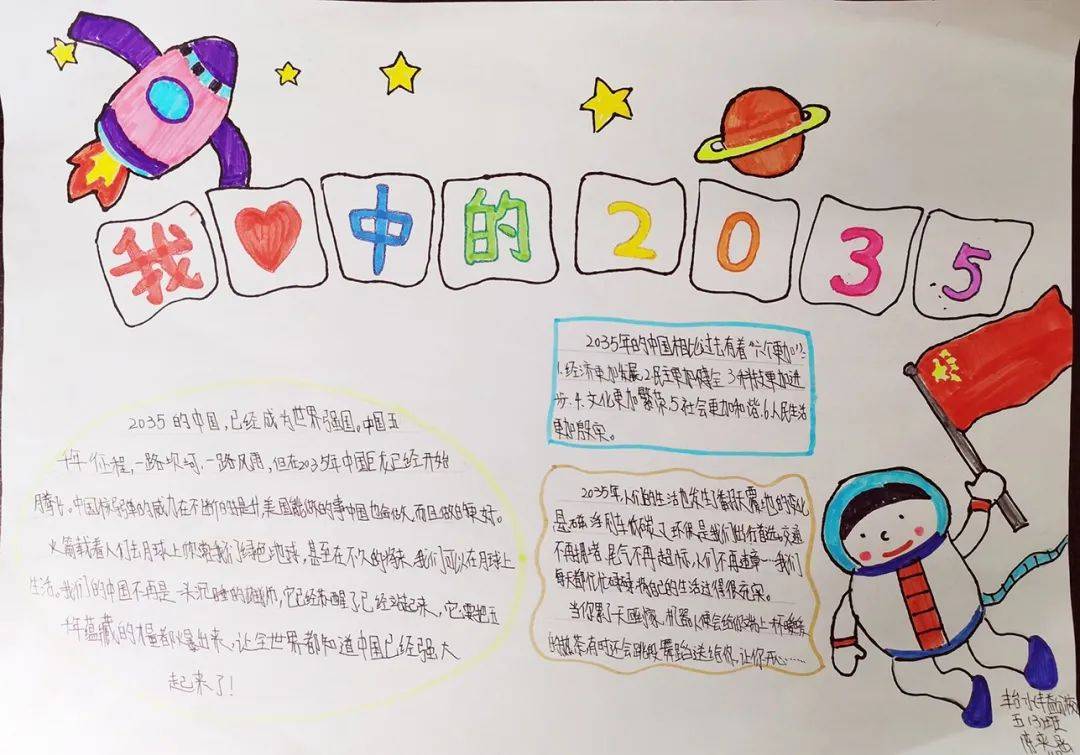 我 中的2035
2035的中国,已经成为世界强国。中国五
千年征程,一路坎坷,一路风雨,但在2035年中国巨龙已经开始
腾飞。中国核导弹的威力在不断的提升,美国能做的事中国也能做,而且做的更好。
火箭载着人们去月球上 我们绿色地球,甚至在不久的将来,我们可以在月球上
生活。我们的中国不再是一头沉睡的雄狮,它已经苏醒了已经 起来,它要把五
千年蕴藏的力量都爆出来,让全世界都知道中国已经强大
起来了!
2035年的中国相比过去有着“六个更加”:
1.经济更加发展2.民主更加健全3.科技更加进
步.4.文化更加繁荣.5.社会更加和谐.6.人民生活
更加殷实。
2035年,人们的生活也发生了翻天覆地的变化
是 汽车 环保是我们出行首选。交通
不再拥堵,尾气不再超标,人们不再违章…我们
每天都忙忙碌碌将自己的生活过得很充实。
当你累了 机器人便会给你端上一杯暖暖
的热茶,有时还会跳段舞蹈送给你,让你开心……
五(3)班